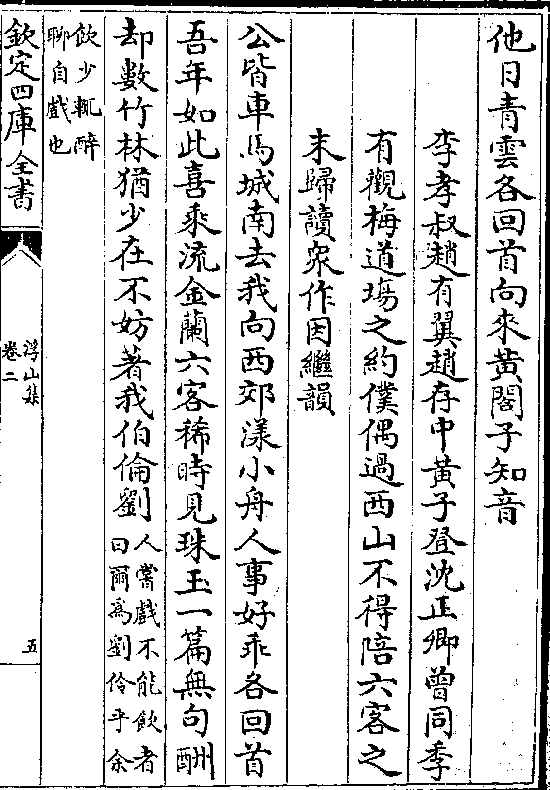 他日青雲各回首向來黃閣子知音
李孝叔趙有翼趙存中黃子登沈正卿曾同季
有觀梅道塲之約僕偶過西山不得陪六客之
末歸讀衆作因繼韻
公皆車馬城南去我向西郊漾小舟人事好乖各回首
吾年如此喜乘流金蘭六客稀時見珠玉一篇無句酬
却數竹林猶少在不妨著我伯倫劉人嘗戲不能飲者
曰爾爲劉伶乎余
飲少輒醉
聊自戲也
欽定四庫全書
浮山集
卷二
五